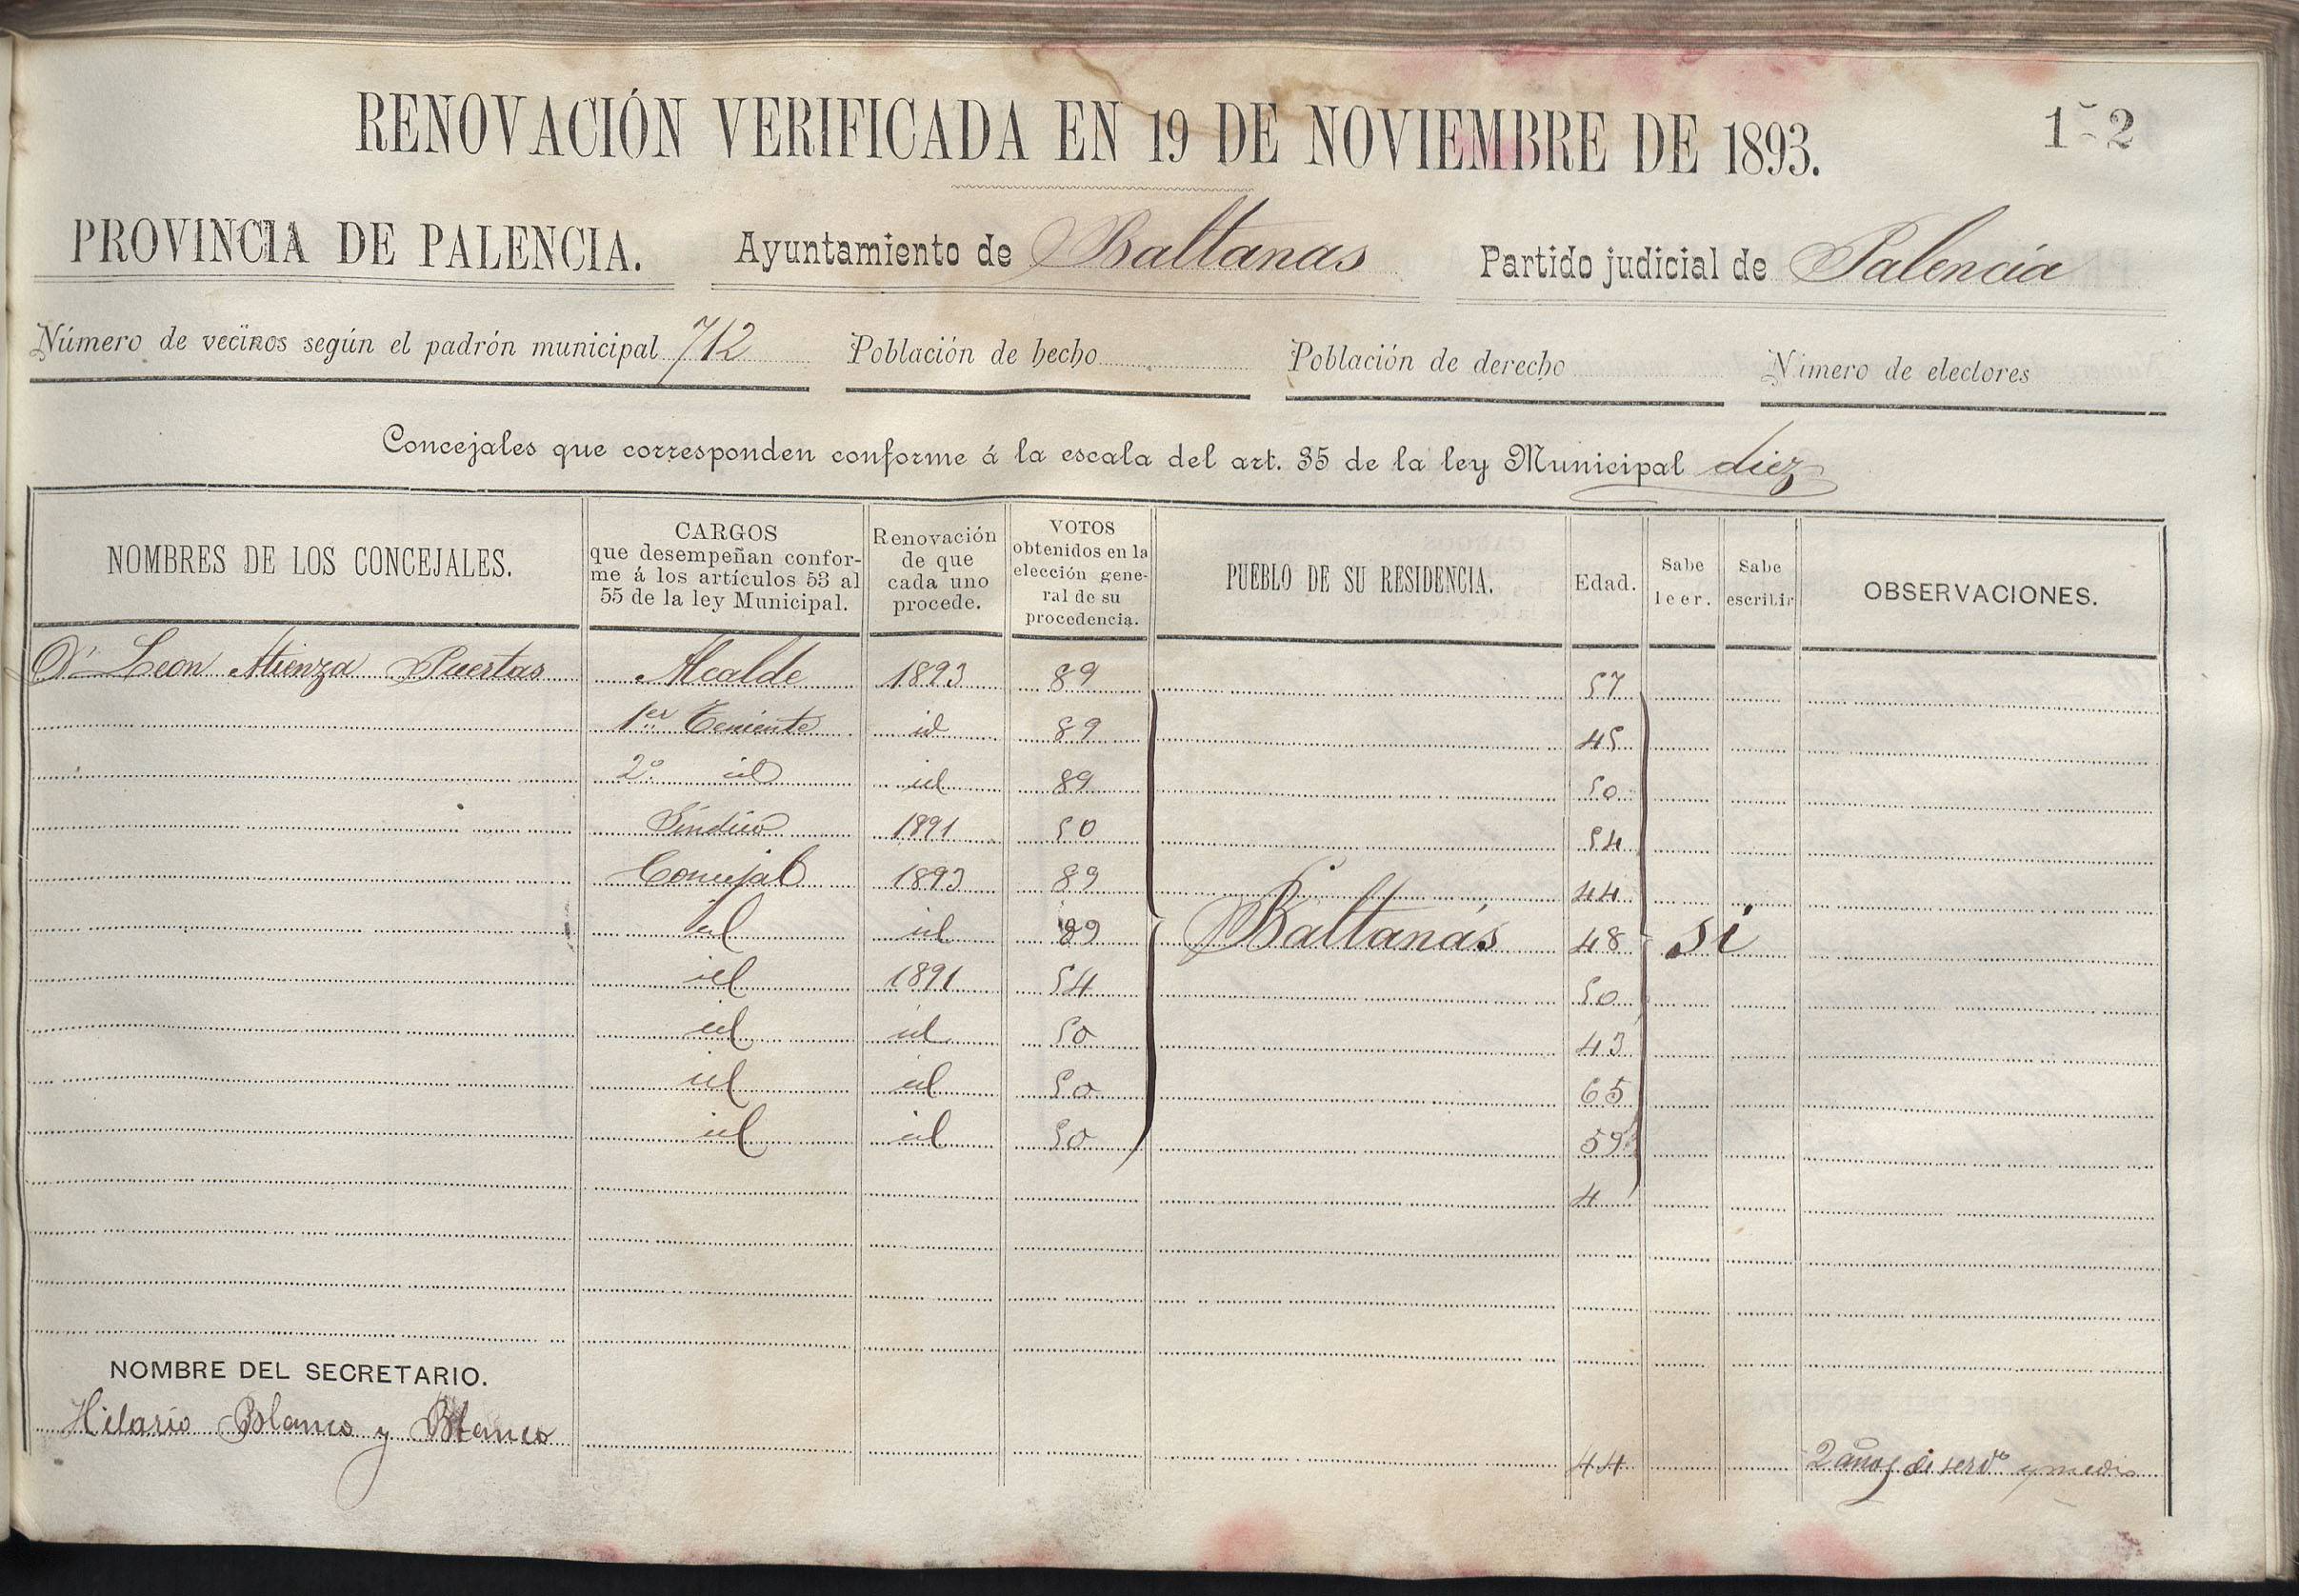 RENOVACIÓN VERIFICADA EN 19 DE NOVIEMBRE DE 1893.
1 2
PROVINCIA DE PALENCIA. Ayuntamiento de Baltanas Partido judicial de Palencia
Número de vecinos según el padrón municipal 712 Población de hecho Población de derecho Número de electores
Concejales que corresponden conforme á la escala del art. 35 de la ley Municipal diez
NOMBRES DE LOS CONCEJALES.
CARGOS
que desempeñan confor-
me á los artículos 53 al
55 de la ley Municipal.
Renovación
de que
cada uno
procede.
VOTOS
obtenidos en la
elección gene-
ral de su
procedencia.
PUEBLO DE SU RESIDENCIA.
Edad.
Sabe
leer.
Sabe
escribir
OBSERVACIONES.
D. Leon Atienza Puertas Alcalde 1893 89 57
1er Teniente id 89 45
2º id id 89 50
Síndico 1891 50 54
Concejal 1893 89 44
id id 89 Baltanás 48 si
id 1891 54 50
id id 50 43
id id 50 65
id id 50 59
4
NOMBRE DEL SECRETARIO.
Hilario Blanco y Blanco 44 2 años de servº y medio